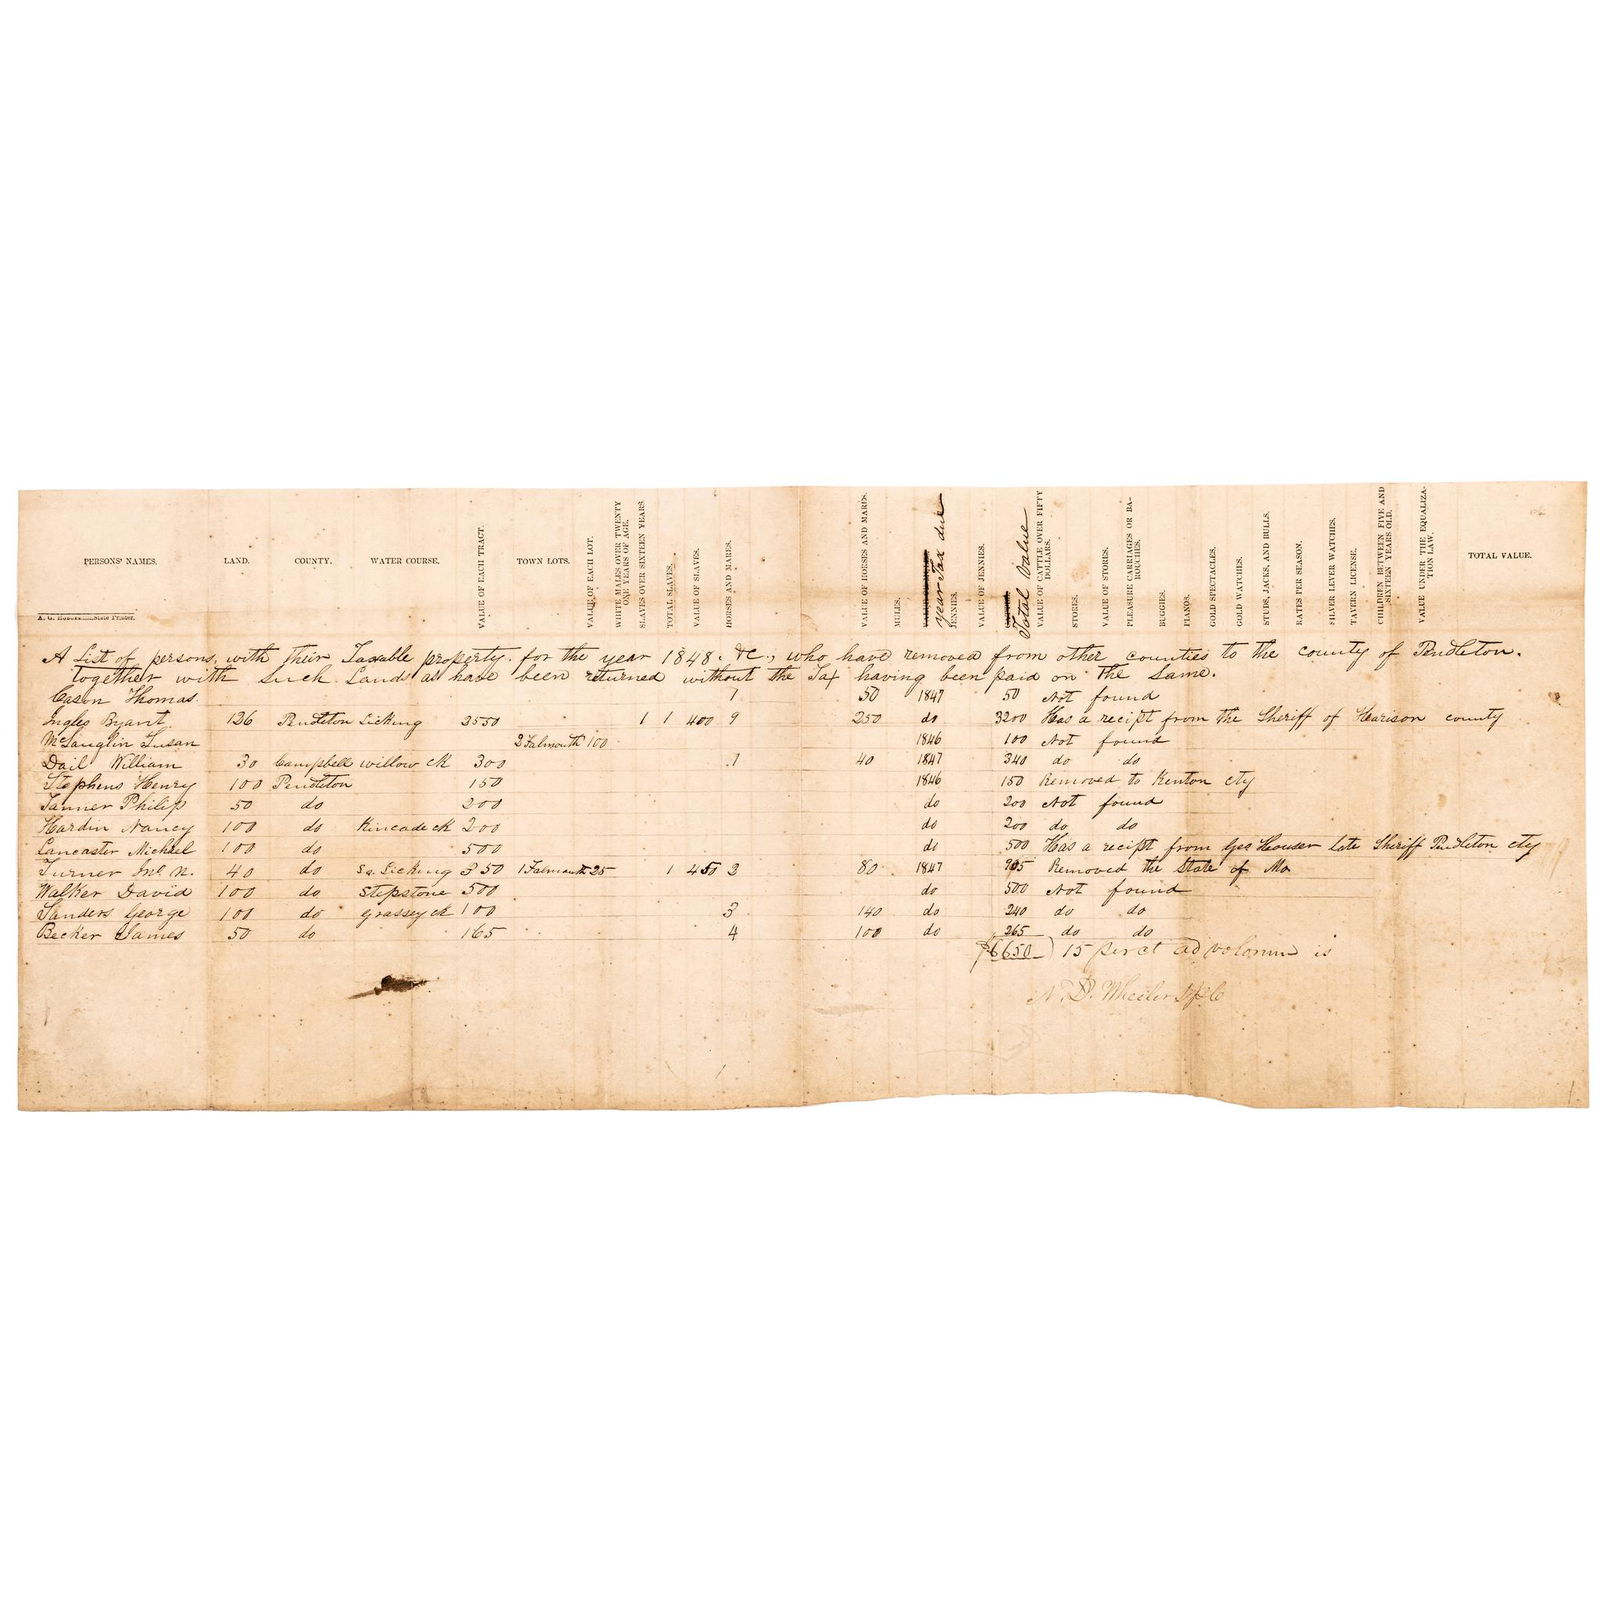 PERSONS' NAMES. LAND. COUNTY. WATER COURSE. VALUE OF EACH TRACT. TOWN LOTS. VALUE OF EACH LOT. WHITE MALES OVER TWENTY ONE YEARS OF AGE. SLAVES OVER SIXTEEN YEARS. TOTAL SLAVES. VALUE OF SLAVES. HORSES AND MARES. VALUE OF HORSES AND MARES. MULES. year Tax due JENNIES. VALUE OF JENNIES. Total Value VALUE OF CATTLE OVER FIFTY DOLLARS. STORES. VALUE OF STORES. PLEASURE CARRIAGES OR BAROUCHES. BUGGIES. PIANOS. GOLD SPECTACLES. GOLD WATCHES. STUDS, JACKS, AND BULLS. RATES PER SEASON. SILVER LEVER WATCHES. TAVERN LICENSE. CHILDREN BETWEEN FIVE AND SIXTEEN YEARS OLD. VALUE UNDER THE EQUALIZATION LAW. TOTAL VALUE.
A. G. State Printer.
A List of persons with their Taxable property for the year 1848. &C., who have removed from other counties to the county of Pendleton.
together with such Land as have been returned without the Tax having been paid on the Same.
Casen Thomas. 1 50 1847 50 Not found
Ingles Byant 126 Pendleton Licking 2550 1 1 400 9 250 do 3200 Has a recipt from the Sheriff of Hearison county
McLauglin Susan 2 Falmouth 100 1846 100 Not found
Dail William 30 Campbell willow ck 300 1 40 1847 340 do do
Stephens Henry 100 Pendleton 150 1846 150 Removed to Kenton cty
Tanner Philip 50 do 200 do 200 Not found
Hardin Nancy 100 do Kincade ck 200 do 200 do do
Lancaster Michael 100 do 500 do 500 Has a recipt from Geo Houser late Sheriff Pendleton cty
Turner Jno N. 40 do So. Licking 350 1 Falmouth 25 1 450 2 80 1847 905 Removed the State of Mo
Walker David 100 do Stepstone 500 do 500 Not found
Sanders George 100 do grassy ck 100 3 140 do 240 do do
Becker James 50 do 165 4 100 do 265 do do
$6650 15 per ct ad volorum is
N. D. Wheeler